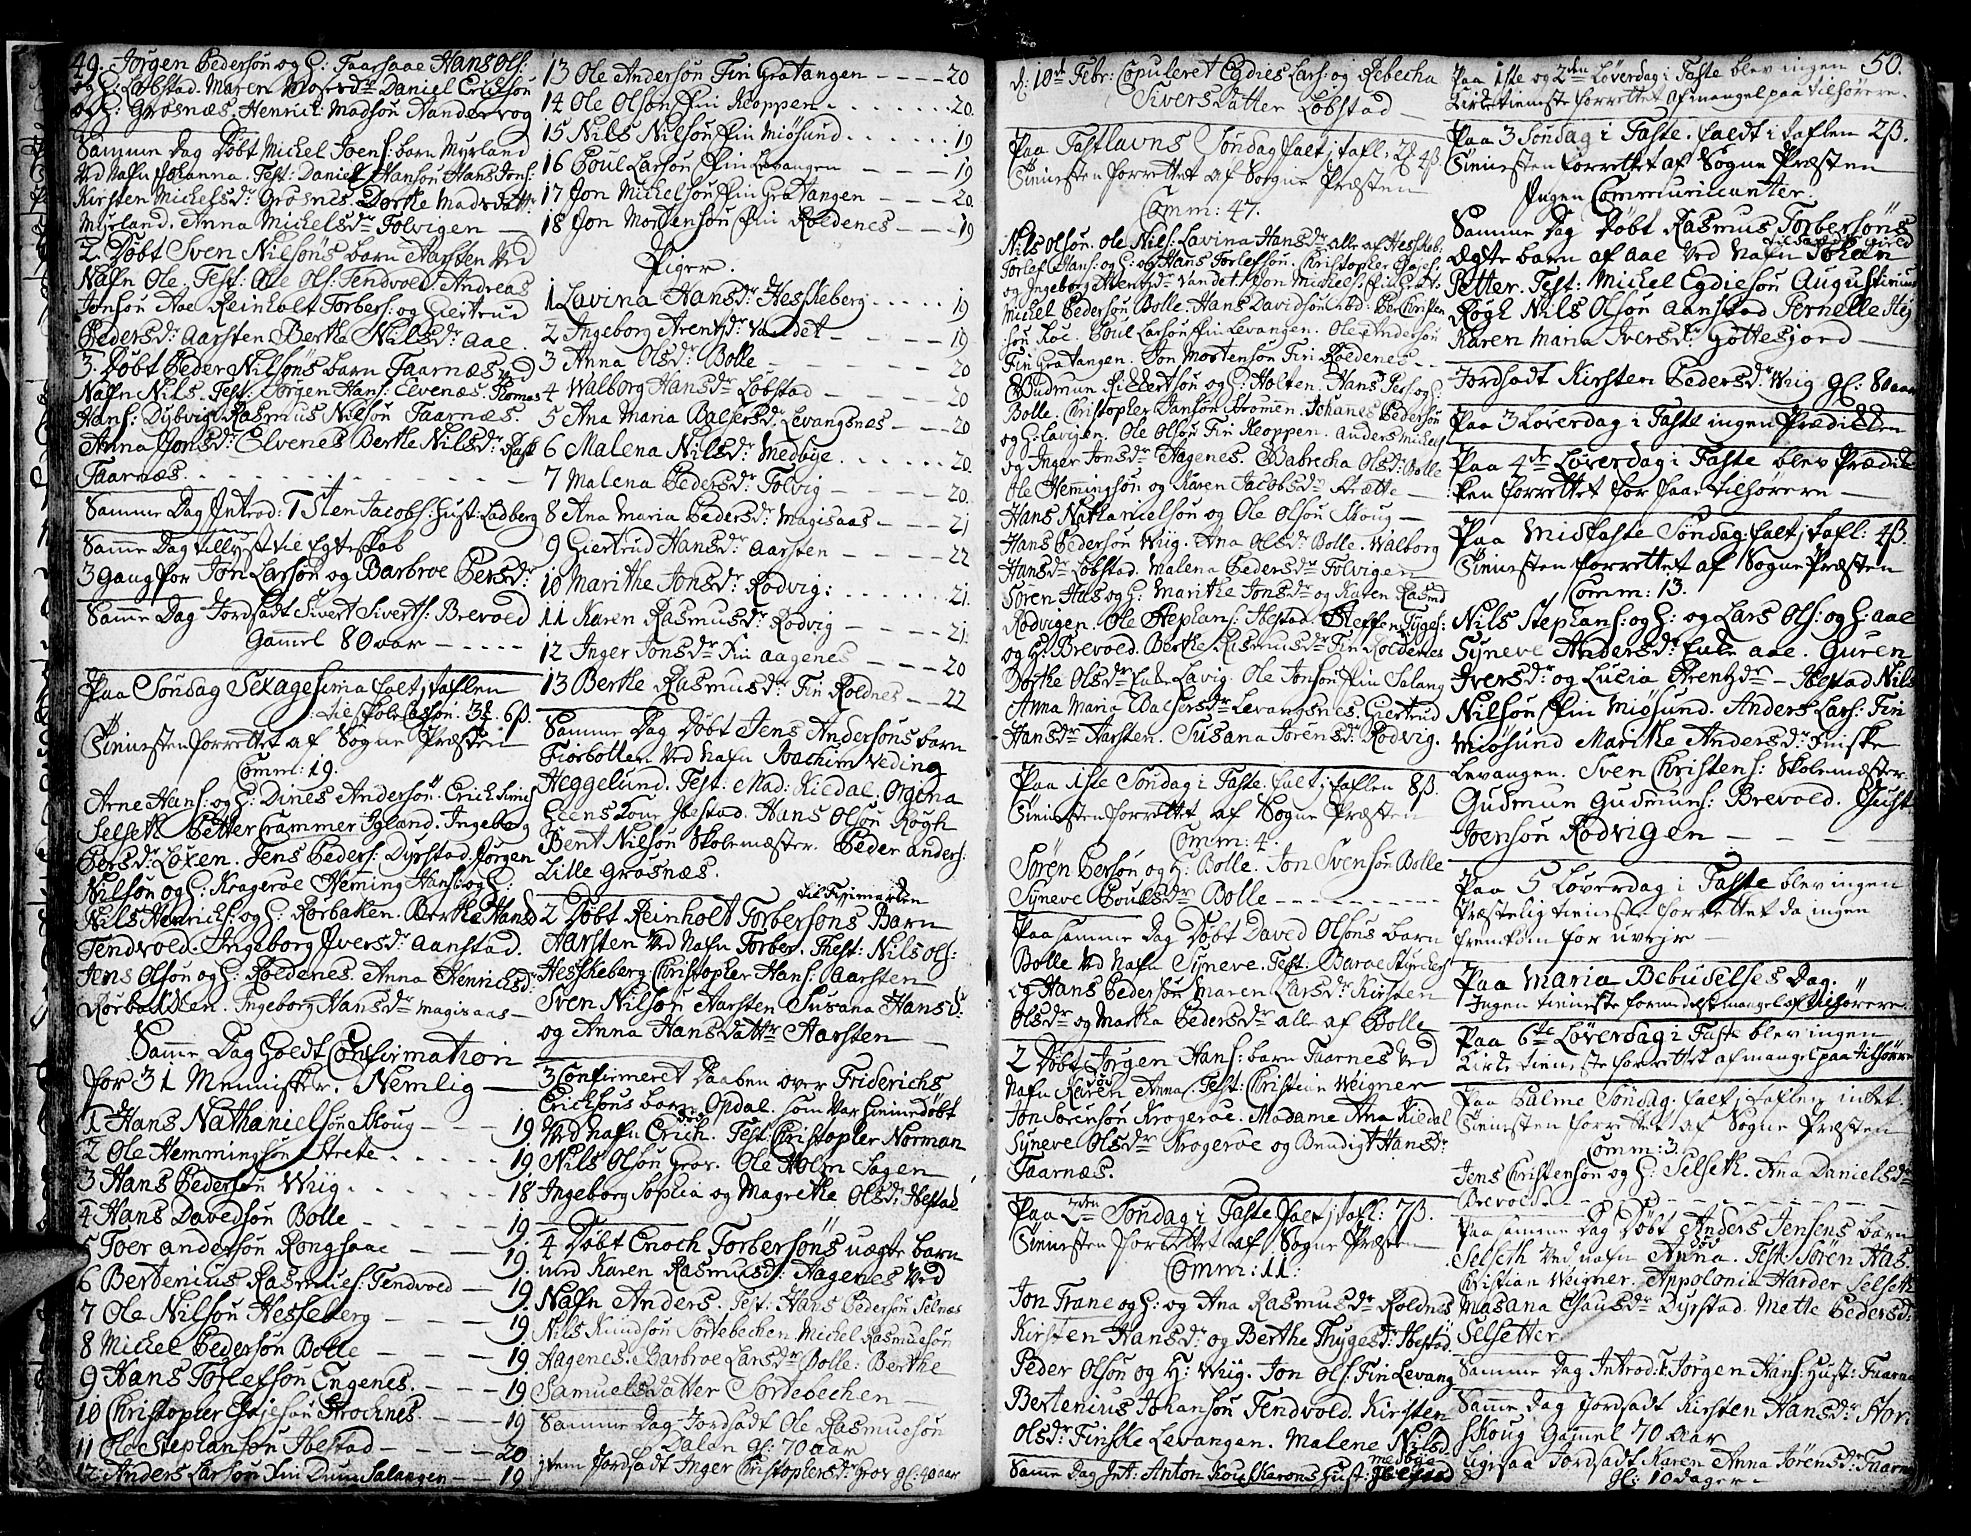 49. Jørgen Pedersøn og H: Faarsaae Hans Ols:
og H: Løbstad. Maren Mogensdr. Daniel Erichsøn
og H: Grosnæs. Henrich Madsøn Aandervog
Samme Dag Døbt Michel Joens: barn Myrland
ved Nafn Johanna. Test: Daniel Hansøn Hans Jons:
Kirsten Michelsdr. Grosnes. Dorthe Madsdatt:
Myrland. Anna Michelsdr Folvigen —
2. Døbt Sven Nilsøns barn Aarsten ved
Nafn Ole. Test: Ole Ols: Tendvold Andreas
Jonsøn Aae Reinholt Torbers: og Giertrud
Pedersdr Aarsten Berthe Nilsdr. Aae.
3. Døbt Peder Nilsøns barn Faarnæs ved
Nafn Nils. Test: Jørgen Hans: Elvenæs. Thomas
Hans: Dybvig Rasmus Nilsøn Faarnæs.
Anna Jonsdr. Elvenes Berthe Nilsdr.
Faarnæs.
Samme Dag Introd: Sten Jacobs: Hust: Ladberg
Samme Dag tillyst til Egteskab
3 gang for Jon Larsøn og Barbroe Persdr
Samme Dag Jordfædt Sivert Siverts: Brevold
Gammel 80 aar — — —
Paa Søndag Sexagesima falt i taflen
til Skole Cassøn: 3 6ß.
Tienesten forrettet af Sogne Præsten
Comm: 19.
Arne Hans: og H: Dines Andersøn. Erich
Selseth Petter Crammer Igland. Ingeborg
Persdr. Loxen. Jens Peders: Dyrstad. Jørgen
Nilsøn og H: Kragerøe Heming Hans: og H:
Nils Henrichs: og H: Rørbakken. Berthe Hansd
Tendvold. Ingeborg Iversdr. Aanstad.
Jens Olsøn og H: Roldenes. Anna Henrichsd:
Rørbakken. Ingeborg Hansdr Magisaas —
Samme Dag Holdt Confirmation
for 31 Mennisker. Nemlig —
1 Hans Nathanielsøn Skoug — — — 19.
2 Ole Hemmingsøn Strete . . . . . 19.
3 Hans Pedersøn Wiig . . . . . . 18
4 Hans Davedsøn Bolle — — — — 19.
5 Toer Andersøn Rongsaae — — — 19.
6 Bertenius Rasmus: Tendvold — — 19.
7 Ole Nilsøn Hesseberg — — — — 19.
8 Michel Pedersøn Bolle — — — — 19.
9 Hans Torlefsøn Engenes. — — — 19.
10 Christopher Gløjesøn Strømnes. — 19
11 Ole Stephansøn Ibestad — — — — 20
12 Anders Larsøn Fin Dum Salangen — — 19.
13 Ole Andersøn Fin Gratangen — — — — 20
14 Ole Olsøn Fin Keoppen . . . . . . . 20
15 Nils Nilsøn Fin Miøsund . . . . . . 19
16 Poul Larsøn Fin Levangen — — — — 19
17 Jon Michelsøn Fin Gratangen — — — 20
18 Jon Mortensøn Fin Roldenes — — — 19
Piger.
1 Lavina Hansdr. Hesseberg . . . . . 19
2 Ingeborg Arentzdr. Vandet — — — 19
3 Anna Olsdr. Bolle — — — — — 20
4 Walborg Hansdr Løbstad — — — — 20
5 Ana Maria Balsersd: Levangsnes — — — 20
6 Malena Nilsdr: Medbye . . . . . . 20.
7 Malena Pedersdr. Folvig — — — — 20.
8 Ana Maria Pedersdr: Magisaas — — — 21
9 Giertrud Hansdr. Aarsten — — — — 22
10 Marithe Jonsdr. Rodvig: . . . . . 21.
11 Karen Rasmusdr. Rodvig — — — — 21.
12 Inger Jonsdr Fin Aagenes — — — 20
13 Berthe Rasmusdr. Fin Roldnes — — 22
Samme Dag Døbt Jens Andersøns barn
Fiorbotten ved Nafn Joachim Veding
Heggelund. Test: Mad: Kiedal. Orgina
Geens Tour Ibestad. Hans Olsøn Røgh
Bent Nilsøn Skolemæster. Peder Anders:
Lille Grosnæs.
2 Døbt Reinholt Torbersøns Barn
Aarsten ved Nafn Torber. Test: Nils Ols:
Hesseberg Christopher Hans: Aarsten
Sven Nilsøn Aarsten Susana Hansd:
og Anna Hansdatter Aarsten —
3 Confirmeret Daaben over Friderichs
Erichsøns barn Opdal. som var hiemmedøbt
ved Nafn Erich. Test: Christopher Norman
Nils Olsøn Grov. Ole Holm Sagen
Ingeborg Sophia og Magrethe Olsdr: Ibestad
4 Døbt Enoch Torbersøns uægte barn
med Karen Rasmusd: Aagenes ved
Nafn Anders. Test: Hans Pedersøn Selnæs
Nils Knudsøn Sortebechen Michel Rasmusøn
Aagenes. Barbroe Larsdr Bolle: Berthe
Samuelsdatter Sortebechen —
Samme Dag Jordfædt Ole Rasmusøn
Dalen gl: 70 aar
item Jordfædt Inger Christophersdr Grov gl: 40 aar
d: 10de Febr: Copuleret Egdies Lars: og Rebecha
Siversdatter Løbstad —
Paa Fastlavns Søndag falt i tafl: 2 4ß.
Tienesten forrettet af Sogne Præsten —
Comm: 47.
Nils Olsøn. Ole Nils: Lavina Hansdr alle af Hesseb:
Torlef Hans: og H: og Hans Torlefsøn. Christopher Gløjes:
og Ingeborg Arentzdr Vandet. Jon Michels: Fin Grat:
Michel Pedersøn Bolle. Hans Davidsøn ibd: Per Christen
søn Roe. Poul Larsøn Fin Levangen. Ole Andersøn
Fin Gratangen. Jon Mortensøn Fin Roldenes —
Gudmun Richertsøn og H: Holten. Hans Pers: og H:
Bolle. Christopher Jansøn Strømen. Johanes Pedersøn
og H: Lavigen. Ole Olsøn Fin Keoppen. Anders Michels:
og Inger Jonsdr Aagenes. Babrecha Olsdr: Bolle
Ole Hemmingsøn og Karen Jacobsdr Strætte —
Hans Nathanielsøn og Ole Olsøn Skoug —
Hans Pedersøn Wiig. Ana Olsdr. Bolle. Walborg
Hansdr Løbstad. Malena Pedersdr Folvigen —
Søren Has og H: Marithe Jonsdr og Karen Rasmd
Rodvigen. Ole Stephans: Ibestad. Steffen Tyges:
og H: Brevold. Berthe Rasmusdr Fin Roldenes
Dorthe Olsdr Lavig. Ole Jonsøn Fin Salang
Anna Maria Balsersdr Levangsnes. Giertrud
Hansdr Aarsten. Susana Sørensd: Rodvig.
Paa 1ste Søndag i Faste falt i taflen 8ß.
Tienesten forrettet af Sogne Præsten
Comm: 4.
Søren Persøn og H: Bolle. Jon Svensøn Bolle
Syneve Poulsdr Bolle — — — — —
Paa samme Dag Døbt Daved Olsøns barn
Bolle ved Nafn Syneve. Test: Baroe
og Hans Pedersøn Maren Larsdr. Kirsten
Olsdr og Martha Pedersdr alle af Bolle
2 Døbt Jørgen Hans: barn Faarnes ved
Nafn Karen Anna. Test: Christian Weigner
Jon Sørensøn Krogerøe. Madame Ana Kiedal
Syneve Olsdr Krogerøe og Bendigt Hansdr
Faarnæs.
Paa 2den Søndag i Faste falt i tafl: 7ß.
Tienesten forrettet af Sogne Præsten —
Comm: 11:
Jon Trane og H: og Ana Rasmusdr Roldnes
Kirsten Hansdr og Berthe Thygesdr Ibestad.
Peder Olsøn og H: Wiig. Jon Ols: Fin Levang
Bertenius Johansøn Tendvold. Kirsten
Olsdr: Finske Levangen. Malene Nilsd:
Medbye
Samme Dag Int: Anton Hust:
50.
Paa 1ste og 2den Løverdag i Faste blev ingen
Kirketieneste forrettet af mangel paa tilhørere.
Paa 3 Søndag i Faste. faldt i taflen 2ß.
Tienesten forrettet af Sogne Præsten
Ingen Communicanter
Samme Dag Døbt Rasmus Torbersøns
Ægte barn af Aae ved Nafn Johan
Petter. Test: Michel Egdiesøn Augustinius
Røgh Nils Olsøn Aanstad Pernelle Hej
Karen Maria Iversdr Gottesjord —
Jordfædt Kirsten Pedersdr. Wiig gl: 80 aar
Paa 3 Løverdag i Faste ingen Prædicken
Paa 4de Løverdag i Faste blev Prædic
ken forrettet for faa tilhørere —
Paa Midfaste Søndag falt i tafl: 4ß.
Tienesten forrettet af Sogne Præsten
Comm: 13.
Nils Stephans: og H: og Lars Ols: og H: Aae
Syneve Andersdr. Enke Aae. Guren
Iversdr og Lucia Arentzdr — Ibestad Nils
Nilsøn Fin Miøsund. Anders Lars: Fin
Miøsund Marithe Andersdr. Finske
Levangen. Sven Christens: Skolemæster.
Gudmun Gudmuns: Brevold. Gust
Joensøn Rodvigen — — —
Paa 5 Løverdag i Faste blev ingen
Præstelig tieneste forrettet da ingen
fremkom for uvejr —
Paa Maria Bebudelses Dag.
Ingen tieneste formedelst mangel af tilhørere
Paa 6te Løverdag i Faste blev ingen
Kirketieneste forrettet af mangel paa tilhørere
Paa Palme Søndag. falt i taflen intet.
Tienesten forrettet af Sogne Præsten
Comm: 3.
Jens Christensøn og H: Selseth. Ana Danielsdr
Brevold.
Paa samme Dag Døbt Anders Jensens barn
Selseth ved Nafn Anna. Test: Søren Has.
Christian Weigner. Appolonia Harder Selseth
Masana Clausdr Dyrstad. Mette Pedersd:
Selsetter
Samme Dag Introd: Jørgen Hans: Hust: Faarnæs
Samme Dag Jordfædt Kirsten Hansdr
Skoug Gamel 70 aar
Ligesaa Jordfædt Karen Anna Jørensdr: Faarnæs
gl: 10 dager —